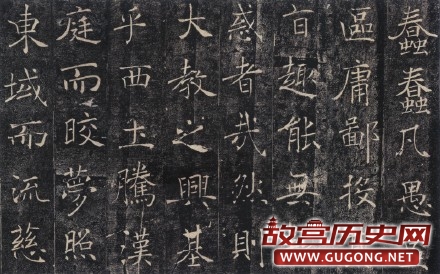 蠢蠢凡愚
區庸鄙投
旨趣能無
惑者哉然則
大教之興基
乎西土騰漢
庭而皎夢照
東域而流慈
故宫历史网
WWW.GUGONG.NET